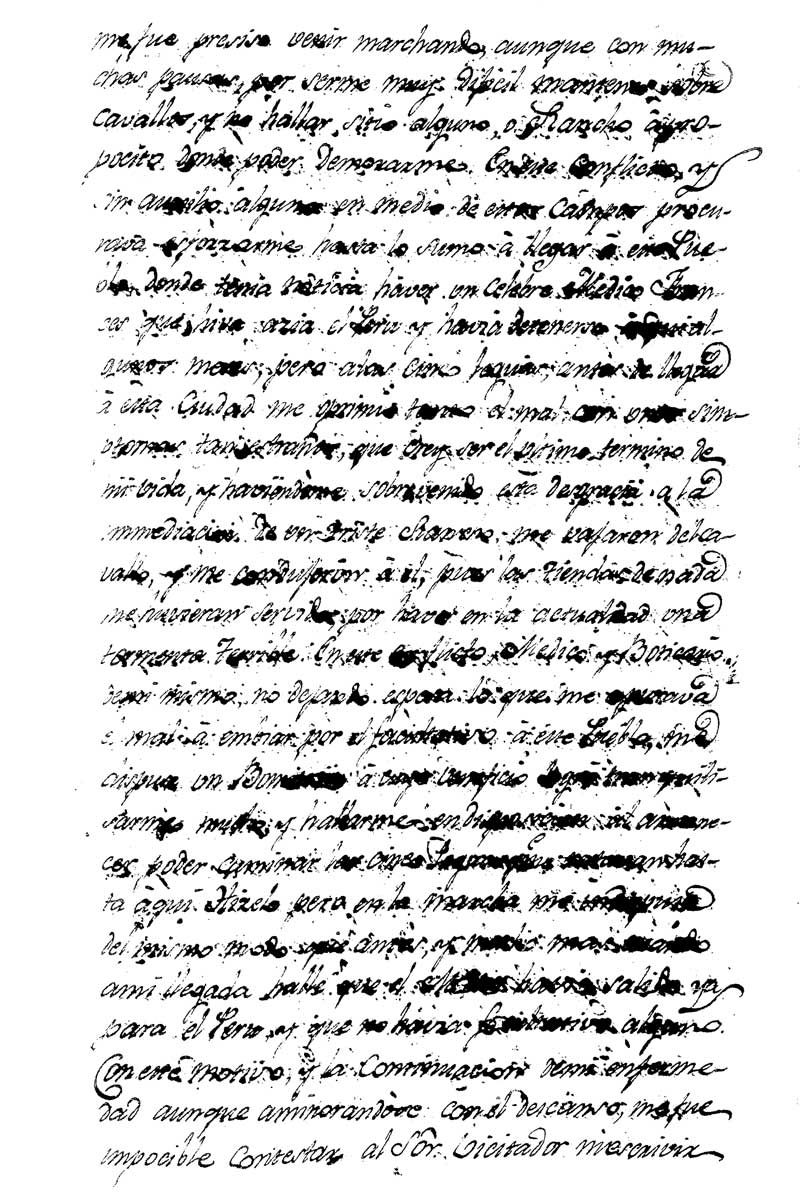 me fue presiso venir marchando, aunque con mu-
chas pausas, por serme muy dificil mantenerme sobre
Cavallo, y no hallar sitio alguno, o Rancho àpro-
pocito donde poder demorarme. En este conflicto, y
sin auxilio alguno en medio de estos Campos procu-
rava esforzarme hasta lo sumo à llegar à este Pue-
blo, donde tenia noticia haver un celebre Medico Fran-
ses que hiva azia el Peru y havia detenerse aqui al-
gunos meses; pero a las cinco leguas, antes de llegar
à esta Ciudad me oprimio tanto el mal, con unos sin-
tomas tan estraños, que crey ser el ultimo termino de
mi vida, y haviendome sobrevenido esta desgracia a la
immediacion de un triste Rancho me vajaron del ca-
vallo, y me condujeron à el, pues las tiendas de nada
me huvieran servido, por haver en la actualidad una
tormenta terrible. En este conflicto, Medico y Boticario
de mi mismo, no dejando espera lo que me apurava
el mal à embiar por el facultativo à este Pueblo, me
dispuse un à cuyo beneficio logré tranquili-
sarme mucho, y hallarme en disposicion al amane-
cer, poder caminar las cinco leguas que restavan has-
ta àqui. Hizelo pero en la marcha me
del mismo modo que antes, y mucho mas quando
a mi llegada hallé que el Medico havia salido ya
para el Peru, y que no havia facultativo alguno.
Con este motivo, y la continuacion de mi enferme-
dad aunque aminorandose con el descanso, me fue
impocible contestar al Sôr. Vicitador ni escrivir